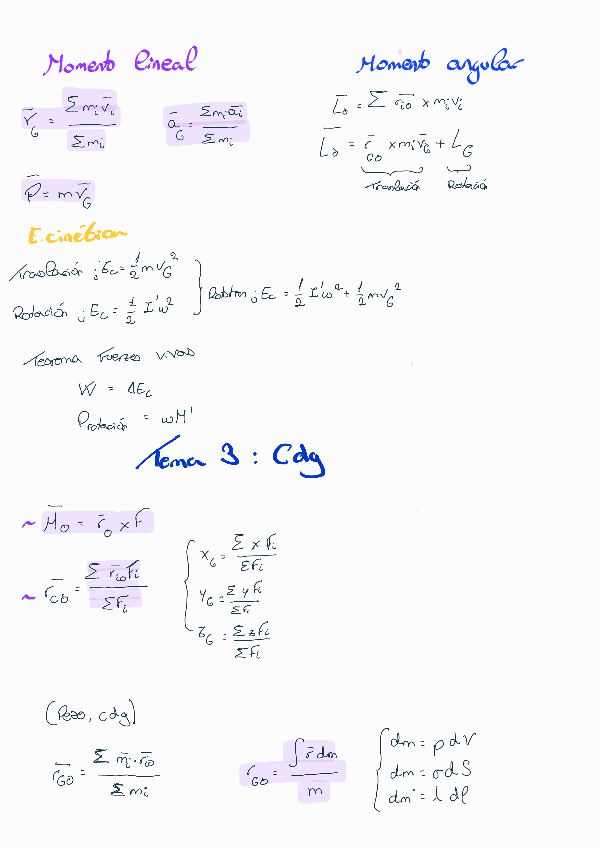 Momento lineal
v̄_G = Σ m_i v̄_i / Σ m_i
ā_G = Σ m_i ā_i / Σ m_i
P̄ = m v̄_G
Momento angular
L̄_o = Σ r̄_io × m_i v_i
L̄_o = r̄_GO × m_i v̄_G + L_G
Traslación Rotación
E. cinética
Traslación ; E_c = 1/2 m v_G²
Rotación ; E_c = 1/2 I' ω²
E_c = 1/2 I' ω² + 1/2 m v_G²
Teorema Fuerzas vivas
W = ΔE_c
P rotación = ω M'
Tema 3 : Cdg
~ M̄_o = r̄_o × F
~ r̄_CO = Σ r̄_io F_i / Σ F_i
x_G = Σ x F_i / Σ F_i
y_G = Σ y F_i / Σ F_i
z_G = Σ z F_i / Σ F_i
(Peso, cdg)
r̄_GO = Σ m̄_i · r̄_io / Σ m_i
r_GO = ∫ r̄ dm / m
dm = ρ dV
dm = σ dS
dm = λ dl